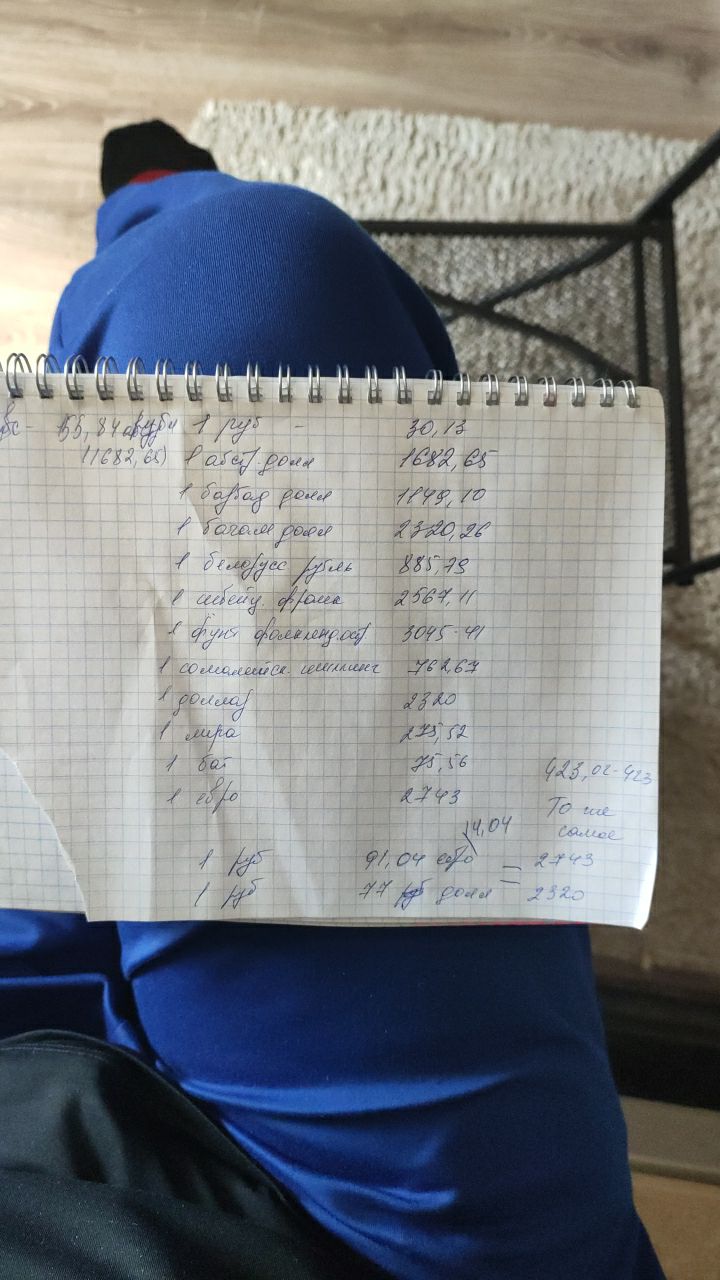 55,84 1 руб - 30,13
(1682,65) 1 австр долл 1682,65
1 барбад долл 1149,10
1 багам долл 2320,26
1 белорусс рубль 885,79
1 швейц. франк 2567,11
1 фунт фолкленд.ост 3045-41
1 сомалийск. шиллинг 762,67
1 доллар 2320
1 лира 275,52
1 бат 75,56
423,02-423
1 евро 2743
То же
самое
14,04
1 руб 91,04 евро = 2743
1 руб 77 долл = 2320